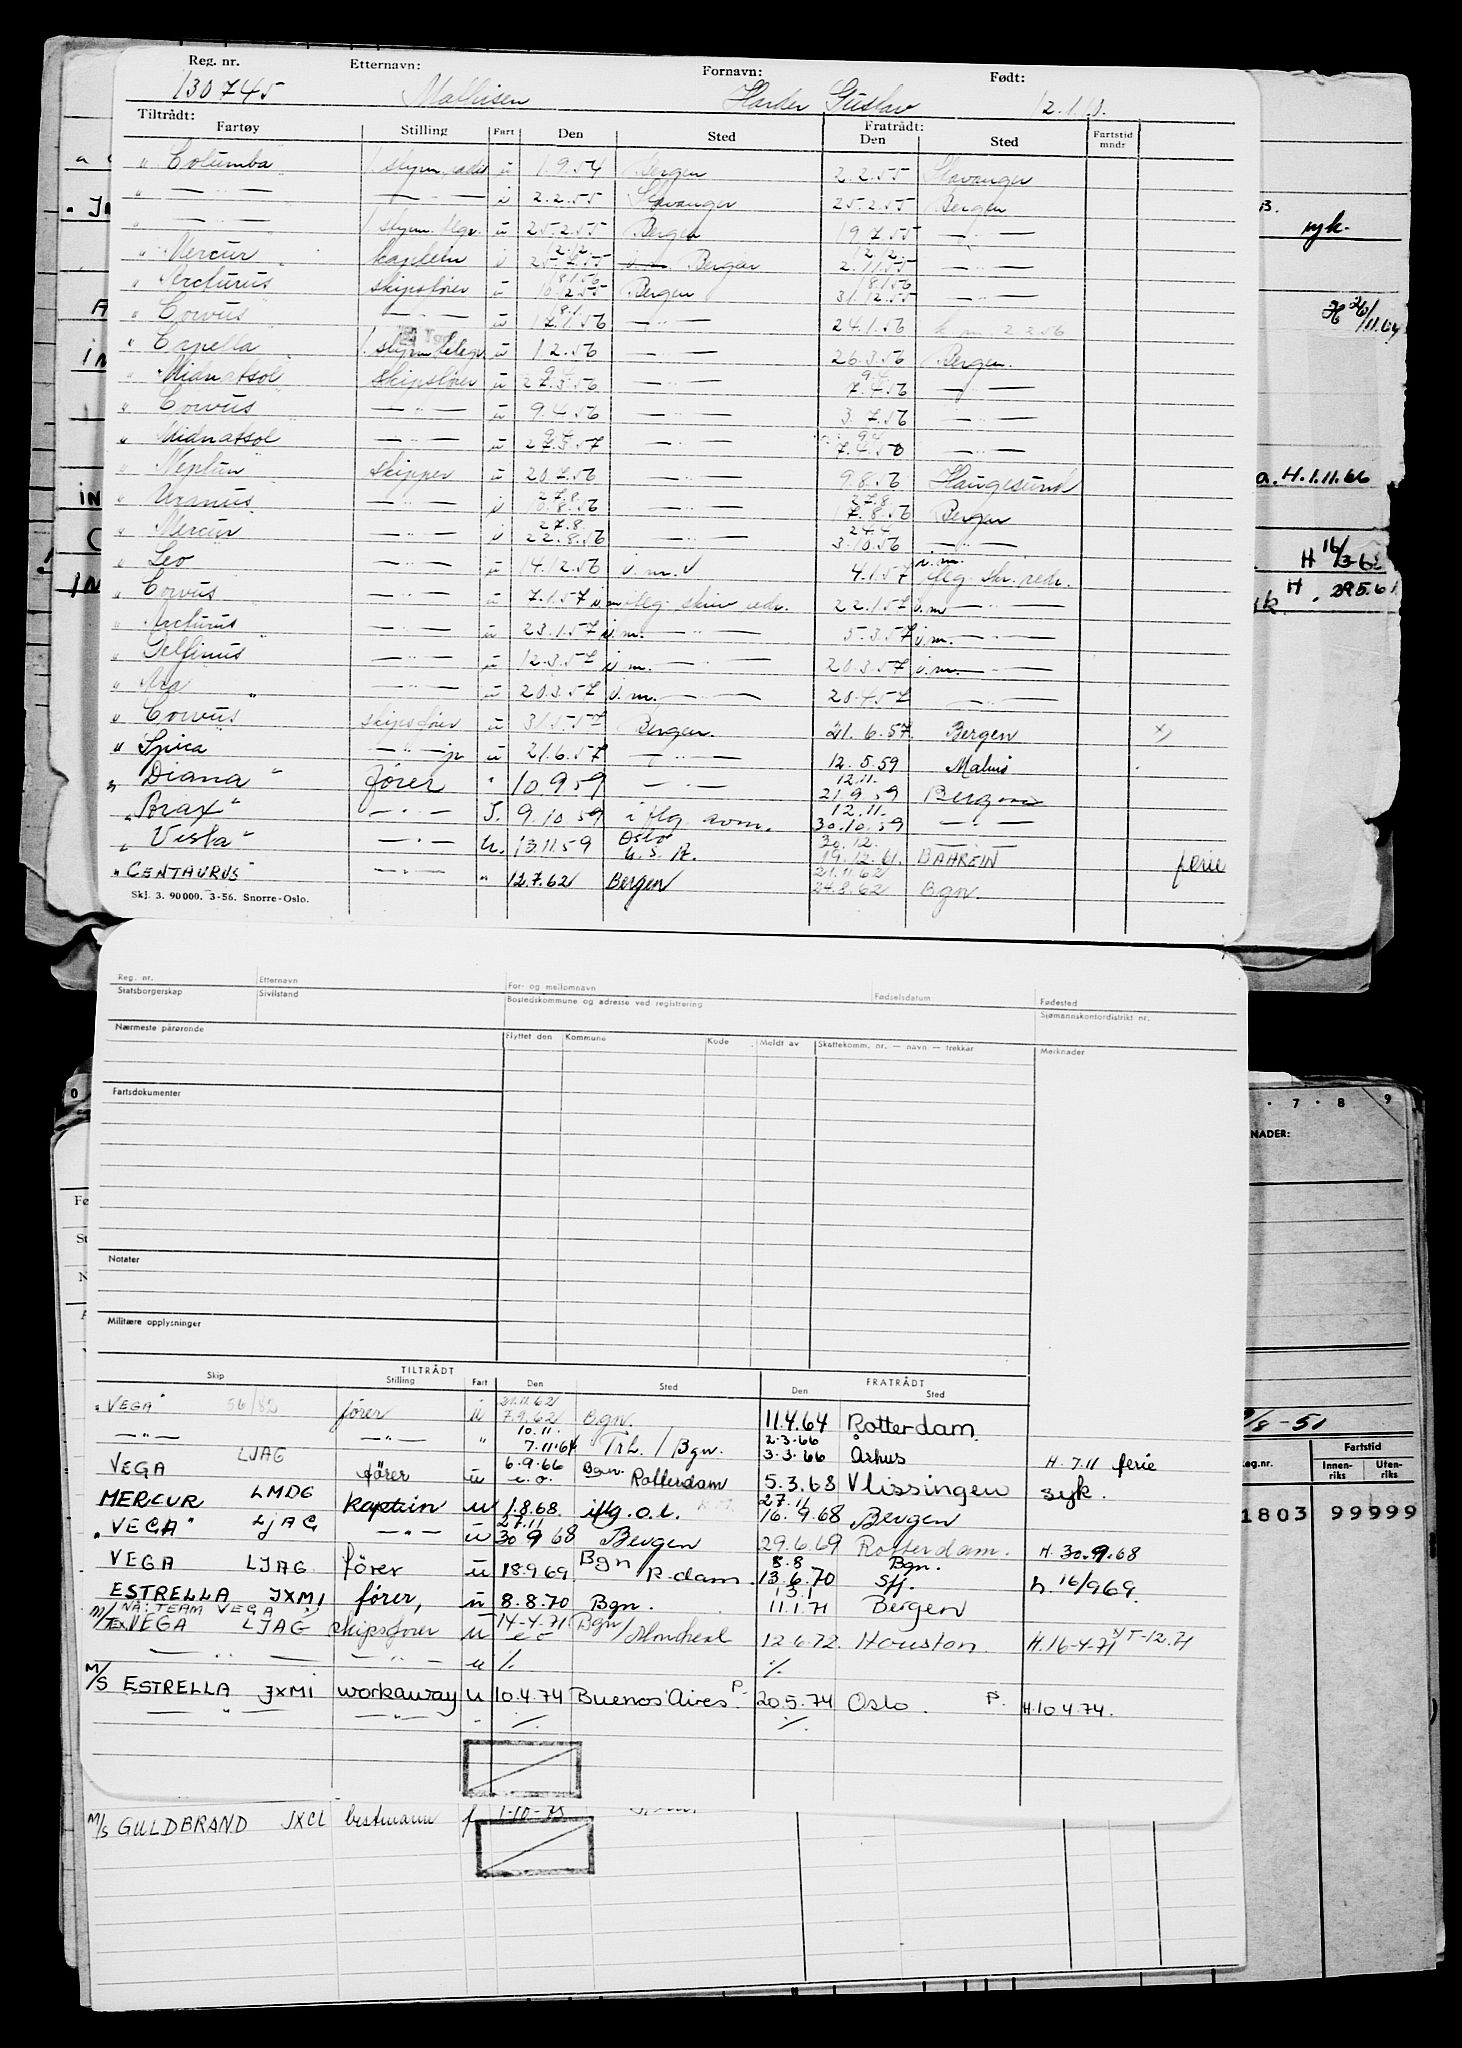 Reg. nr. Etternavn: Fornavn: Født:
130745 Mathisen Harder Gustav 12.1.13.
Tiltrådt: Fratrådt:
Fartøy Stilling Fart Den Sted Den Sted Fartstid mndr
" Columba 1. styrm. u 1.9.54 Bergen 2.2.55 Stavanger
" — " — — " — i 2.2.55 Stavanger 25.2.55 Bergen
" — " — 1 styrm. u 25.2.55 Bergen 19.7.55 — " —
12.12 12.12
" Mercur kaptein i Bergen 2.11.55 — " —
8.1.56 8.1.56
" Arcturus skipsfører u 10.12.55 Bergen 31.12.55 — " —
" Corvus — " — u 17.1.56 — " — 24.1.56 k.m. 2.2.56
" Capella 1. styrm u 1.2.56 — " — 26.3.56 Bergen.
" Midnatsol skipsfører u 27.3.56 — " — 7.4.56 — " —
" Corvus — " — u 9.4.56 — " — 3.7.56 — " —
" Midnatsol — " — u 27.3.57 — " — — " —
" Neptun skipper u 20.7.56 — " — 9.8.56 Haugesund
27.8. 27.8
" Uranus — " — i 10.8.56 — " — 17.8.56 Bergen
27.8. 24.4
" Mercur — " — i 22.8.56 — " — 3.10.56 — " —
" Leo — " — u 14.12.56 v.m. 4.1.57 v.m. iflg. skr. redr.
" Corvus — " — u 7.1.57 v.m iflg. skriv redr. 22.1.57 v.m — " —
" Arcturus — " — u 23.1.57 v.m. — " — 5.3.57 v.m. — " —
" Delfinus — " — u 12.3.57 v.m. — " — 20.3.57 v.m. — " —
" Ara " — " — u 20.3.57 v.m. — " — 20.4.57 — " —
" Corvus skipsfører u 31.5.57 Bergen. 21.6.57. Bergen x)
" Spica — " — u 21.6.57 — " — 12.5.59 Malmö
12.11.
" Diana " fører " 10 9 59 — " — 21 9 59 Bergen
12.11.
" Arax " — " — 9.10 59 i flg. avm. 30.10.59 — " —
Oslo 30.12.
" Vesta " — " — U. 13.11.59 U.S.A. 19.12.61. BAHREIN ferie
21.11.62
" CENTAURUS " — " — " 12.7.62 Bergen 24.8.62 Bgn.
Skj. 3. 90000. 3-56. Snorre-Oslo.
syk.
H 26/11.64
a. H. 1.11.66
H 16/3-63
H. 29.5.61
Reg. nr. Etternavn For- og mellomnavn Fødselsdatum Fødested
Statsborgerskap Sivilstand Bostedskommune og adresse ved registrering Sjømannskontordistrikt nr.
Nærmeste pårørende Flyttet den Kommune Kode Meldt av Skattekomm. nr. — navn — trekkar Merknader
Fartsdokumenter
Notater
Militære opplysninger
TILTRÅDT FRATRÅDT
Skip Stilling Fart Den Sted Den Sted
21.11.62
" VEGA " 56/82 fører u 7.9.62 Bgn. 11.4.64 Rotterdam
10.11. 2.3.66
— " — — " — " 7.11.64 Trh. / Bgn. 3.3.66 Århus H. 7.11 ferie
6.9.66
VEGA LJAG fører u e.o. Bgn. Rotterdam 5.3.68 Vlissingen syk.
27.11
MERCUR LMDG kaptein u 1.8.68 iflg. o.l. 16.9.68 Bergen
27.11
" VEGA " LJAG — " — u 30 9 68 Bergen 29.6.69 Rotterdam. H. 30.9.68
8.8 Bgn.
VEGA LJAG fører u 18969 Bgn R.dam 13.6.70 Sfj. h. 16/969.
13.1
ESTRELLA JXMI fører, u 8.8.70 Bgn. 11.1.71 Bergen
NÅ: TEAM VEGA
M/T Ex VEGA LJAG skipsfører u 14-4.71 e o Bgn / Montreal 12.6.72. Houston H. 16-4.71
— " — — " — u ./. ./.
M/S ESTRELLA JXMI workaway u 10.4.74 Buenos Aires P. 20.5.74 Oslo. P. H. 10 4.74.
— " — — " — " ./. ./.
M/S GULDBRAND JXCL bestmann f 1-10-75
7 . 8 9
NADER:
/8-51
eg.nr. Fartstid
Innenriks Utenriks
1803 99999